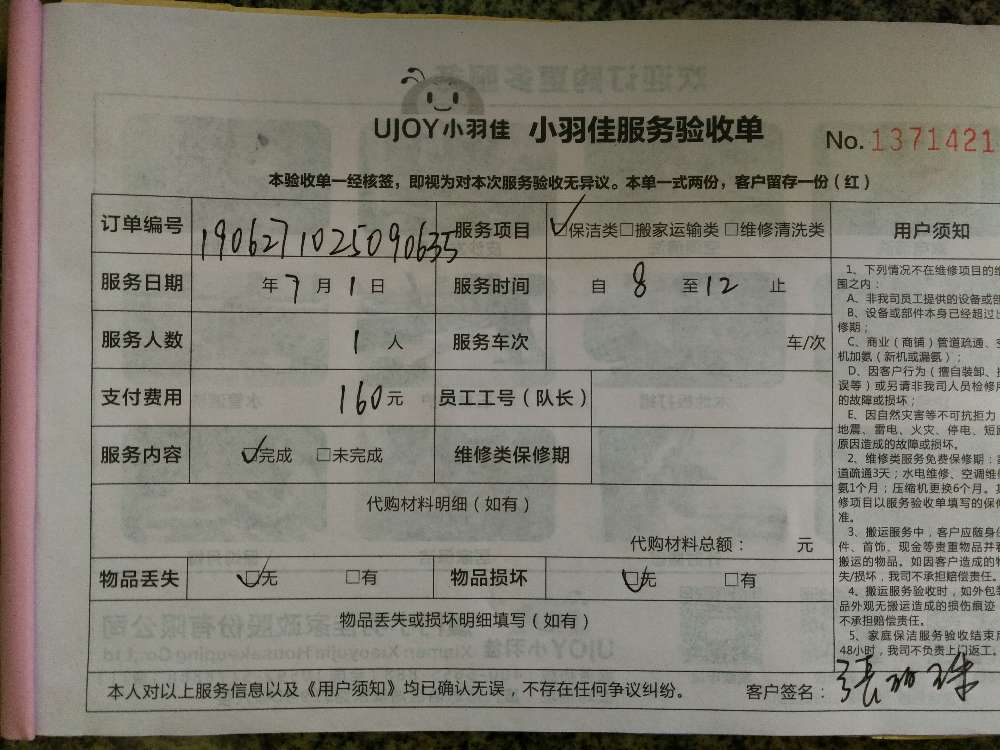 UJOY小羽佳 小羽佳服务验收单
No.1371421
本验收单一经核签，即视为对本次服务验收无异议。本单一式两份，客户留存一份（红）
订单编号 1906271025090635 服务项目 ☑保洁类□搬家运输类 □维修清洗类
服务日期 年7月1日 服务时间 自 8 至12 止
服务人数 1人 服务车次 车/次
支付费用 160元 员工工号（队长）
服务内容 ☑完成 □未完成 维修类保修期
代购材料明细（如有）
代购材料总额： 元
物品丢失 ☑无 □有 物品损坏 ☑无 □有
物品丢失或损坏明细填写（如有）
本人对以上服务信息以及《用户须知》均已确认无误，不存在任何争议纠纷。 客户签名：
用户须知
1、下列情况不在维修项目的维
围之内：
A、非我司员工提供的设备或部
B、设备或部件本身已经超过出
修期；
C、商业（商铺）管道疏通、空
机加氨（新机或漏氨）；
D、因客户行为（擅自装卸、
误等）或另请非我司人员检修
的故障或损坏；
E、因自然灾害等不可抗拒力
地震、雷电、火灾、停电、短
原因造成的故障或损坏。
2、维修类服务免费保修期：
道疏通3天；水电维修、空调维
氨1个月；压缩机更换6个月。
修项目以服务验收单填写的保
准。
3、搬运服务中，客户应随身
件、首饰、现金等贵重物品并
搬运的物品。如因客户造成的
失/损坏，我司不承担赔偿责任。
4、搬运服务验收时，如外包装
品外观无搬运造成的损伤痕迹
不承担赔偿责任。
5、家庭保洁服务验收结束
48小时，我司不负责上门返工。